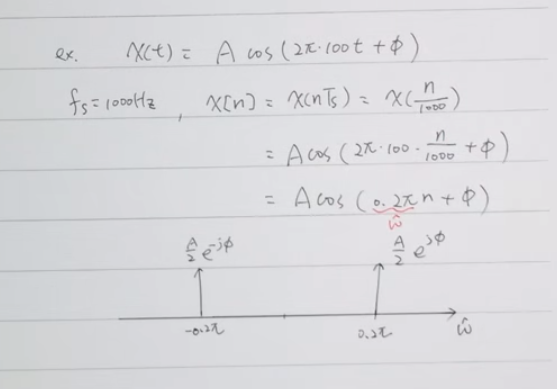 ex. X(t) = A cos(2π·100t + ϕ)
fs = 1000Hz , X[n] = X(nTs) = X(n/1000)
= A cos(2π·100·n/1000 + ϕ)
= A cos(0.2πn + ϕ)
ŵ
A/2 e^-jϕ A/2 e^jϕ
-0.2π 0.2π ŵ